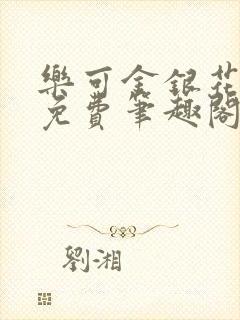 樂可金銀花
免費筆趣閣
劉湘